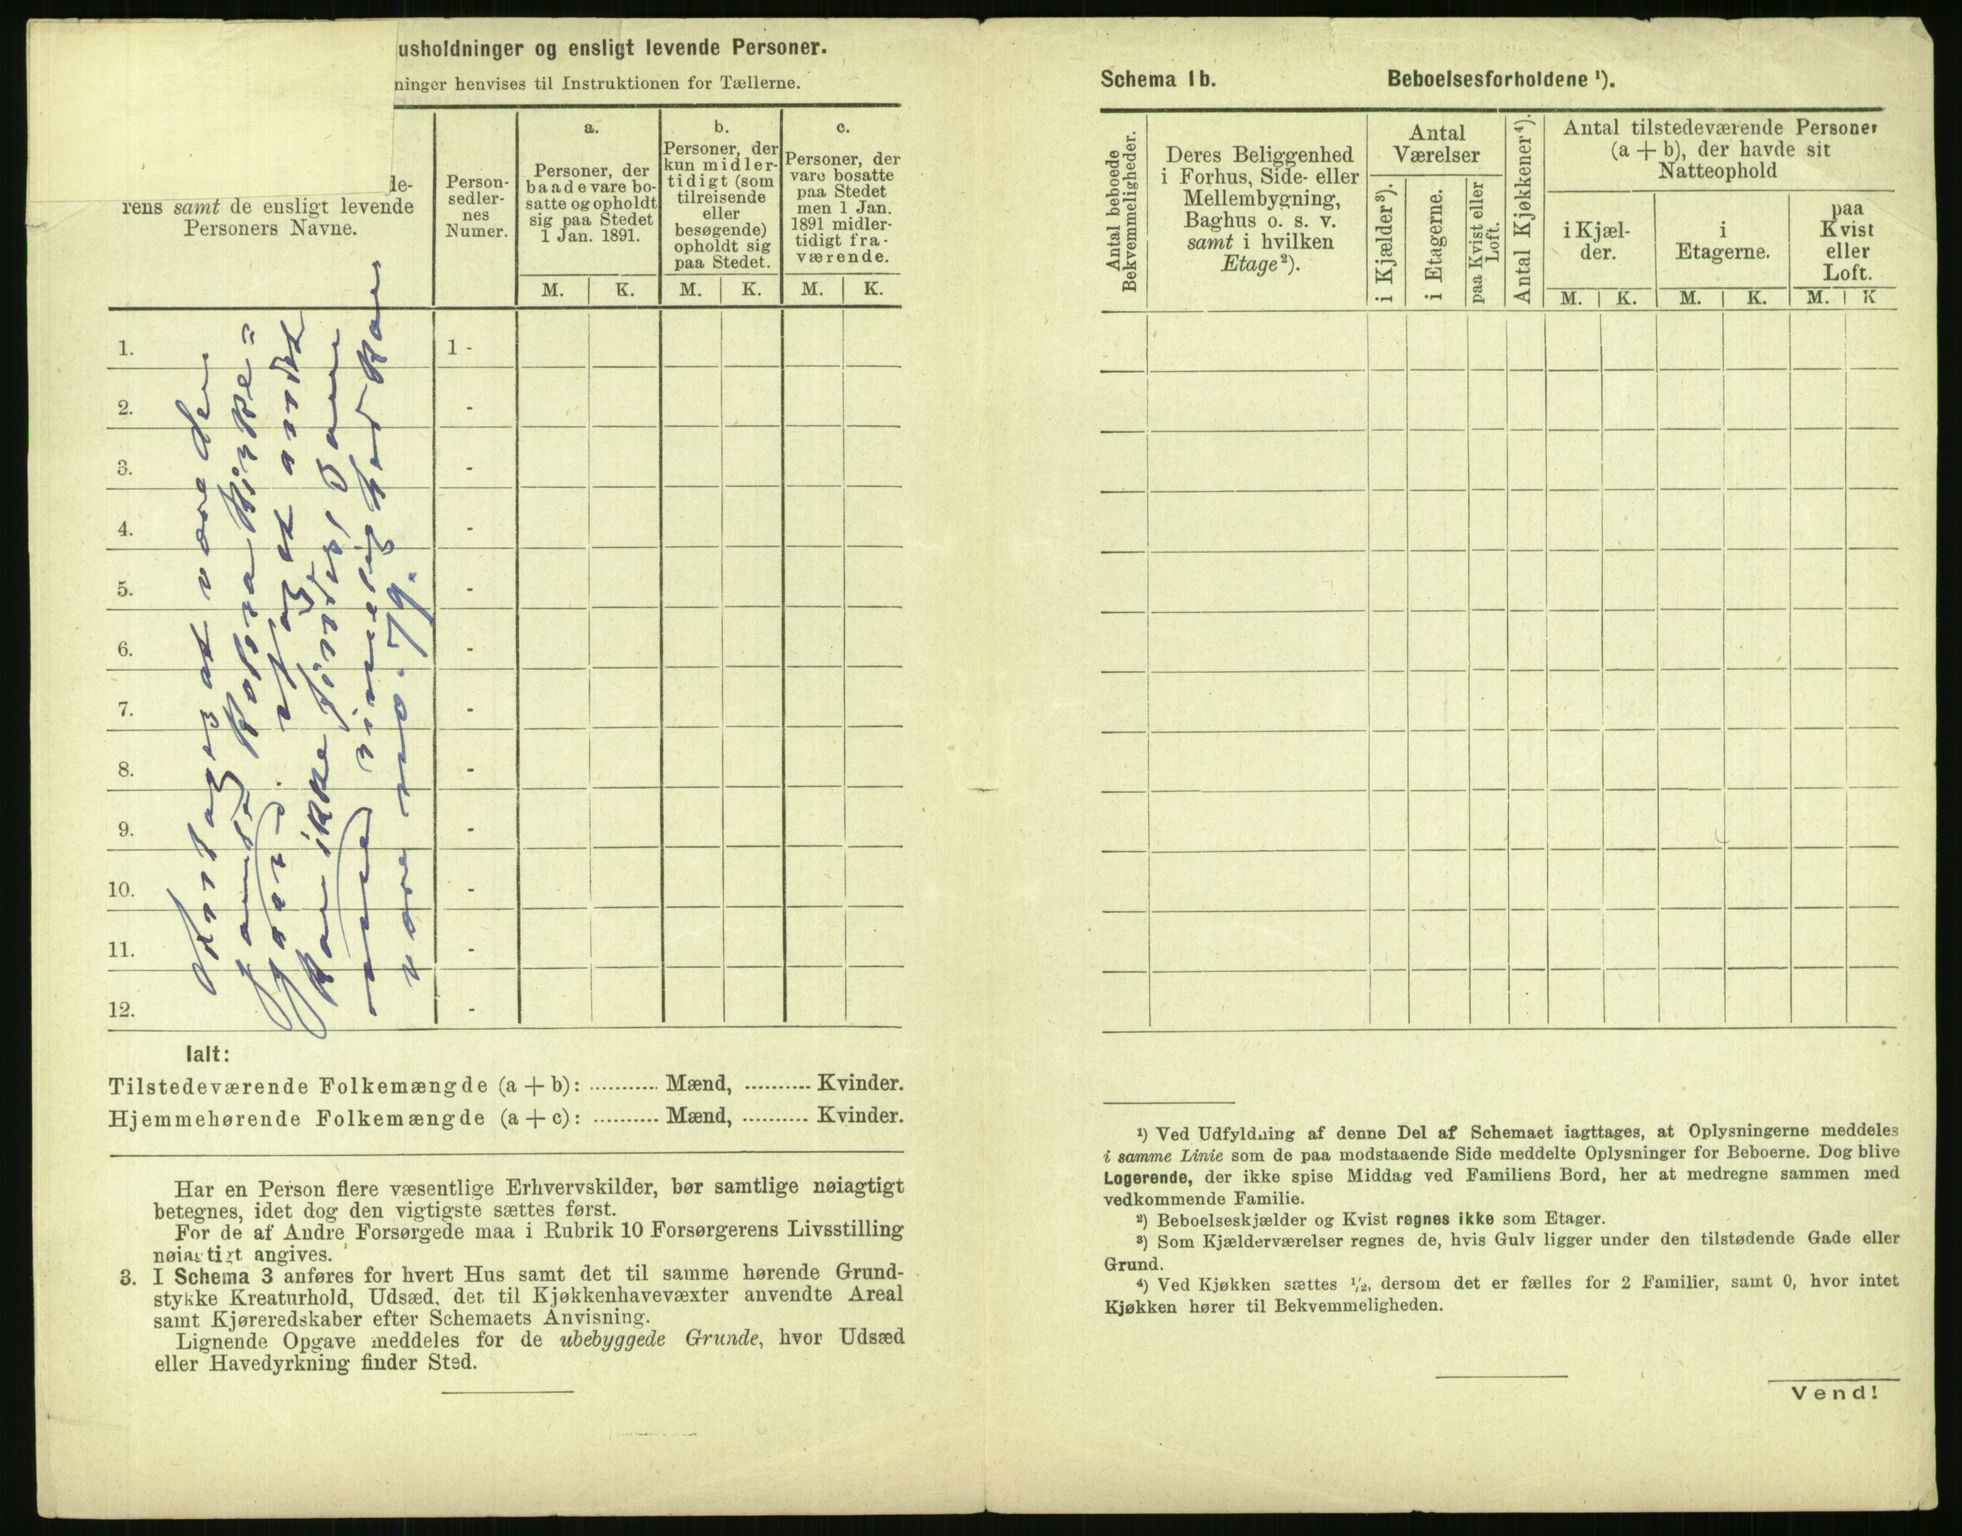 usholdninger og ensligt levende Personer.
ninger henvises til Instruktionen for Tællerne.
de-
rens samt de ensligt levende
Personers Navne.
Person-
sedler-
nes
Numer.
a.
Personer, der
baade vare bo-
satte og opholdt
sig paa Stedet
1 Jan. 1891.
b.
Personer, der
kun midler-
tidigt (som
tilreisende
eller
besøgende)
opholdt sig
paa Stedet.
c.
Personer, der
vare bosatte
paa Stedet
men 1 Jan.
1891 midler-
tidigt fra-
værende.
M. K. M. K. M. K.
1. 1 -
2. -
3. -
4. -
5. -
6. -
7. -
8. -
9. -
10. -
11. -
12. -
Antag at være den
gamle Kirke=
gård. et andet
kan ikke findes,
rimelig
være no. 79.
Ialt:
Tilstedeværende Folkemængde (a + b): ........... Mænd, .......... Kvinder.
Hjemmehørende Folkemængde (a + c): .......... Mænd, .......... Kvinder.
Har en Person flere væsentlige Erhvervskilder, bør samtlige nøiagtigt
betegnes, idet dog den vigtigste sættes først.
For de af Andre Forsørgede maa i Rubrik 10 Forsørgerens Livsstilling
nøiagtigt angives.
3. I Schema 3 anføres for hvert Hus samt det til samme hørende Grund-
stykke Kreaturhold, Udsæd, det til Kjøkkenhavevæxter anvendte Areal
samt Kjøreredskaber efter Schemaets Anvisning.
Lignende Opgave meddeles for de ubebyggede Grunde, hvor Udsæd
eller Havedyrkning finder Sted.
Schema 1b. Beboelsesforholdene ¹).
Antal beboede
Bekvemmeligheder.
Deres Beliggenhed
i Forhus, Side- eller
Mellembygning,
Baghus o. s. v.
samt i hvilken
Etage²).
Antal
Værelser
i Kjælder³).
i Etagerne.
paa Kvist eller
Loft.
Antal Kjøkkener⁴).
Antal tilstedeværende Personer
(a + b), der havde sit
Natteophold
i Kjæl-
der.
i
Etagerne.
paa
Kvist
eller
Loft.
M. K. M. K. M. K
¹) Ved Udfyldning af denne Del af Schemaet iagttages, at Oplysningerne meddeles
i samme Linie som de paa modstaaende Side meddelte Oplysninger for Beboerne. Dog blive
Logerende, der ikke spise Middag ved Familiens Bord, her at medregne sammen med
vedkommende Familie.
²) Beboelseskjælder og Kvist regnes ikke som Etager.
³) Som Kjælderværelser regnes de, hvis Gulv ligger under den tilstødende Gade eller
Grund.
⁴) Ved Kjøkken sættes ¹/₂, dersom det er fælles for 2 Familier, samt 0, hvor intet
Kjøkken hører til Bekvemmeligheden.
Vend!